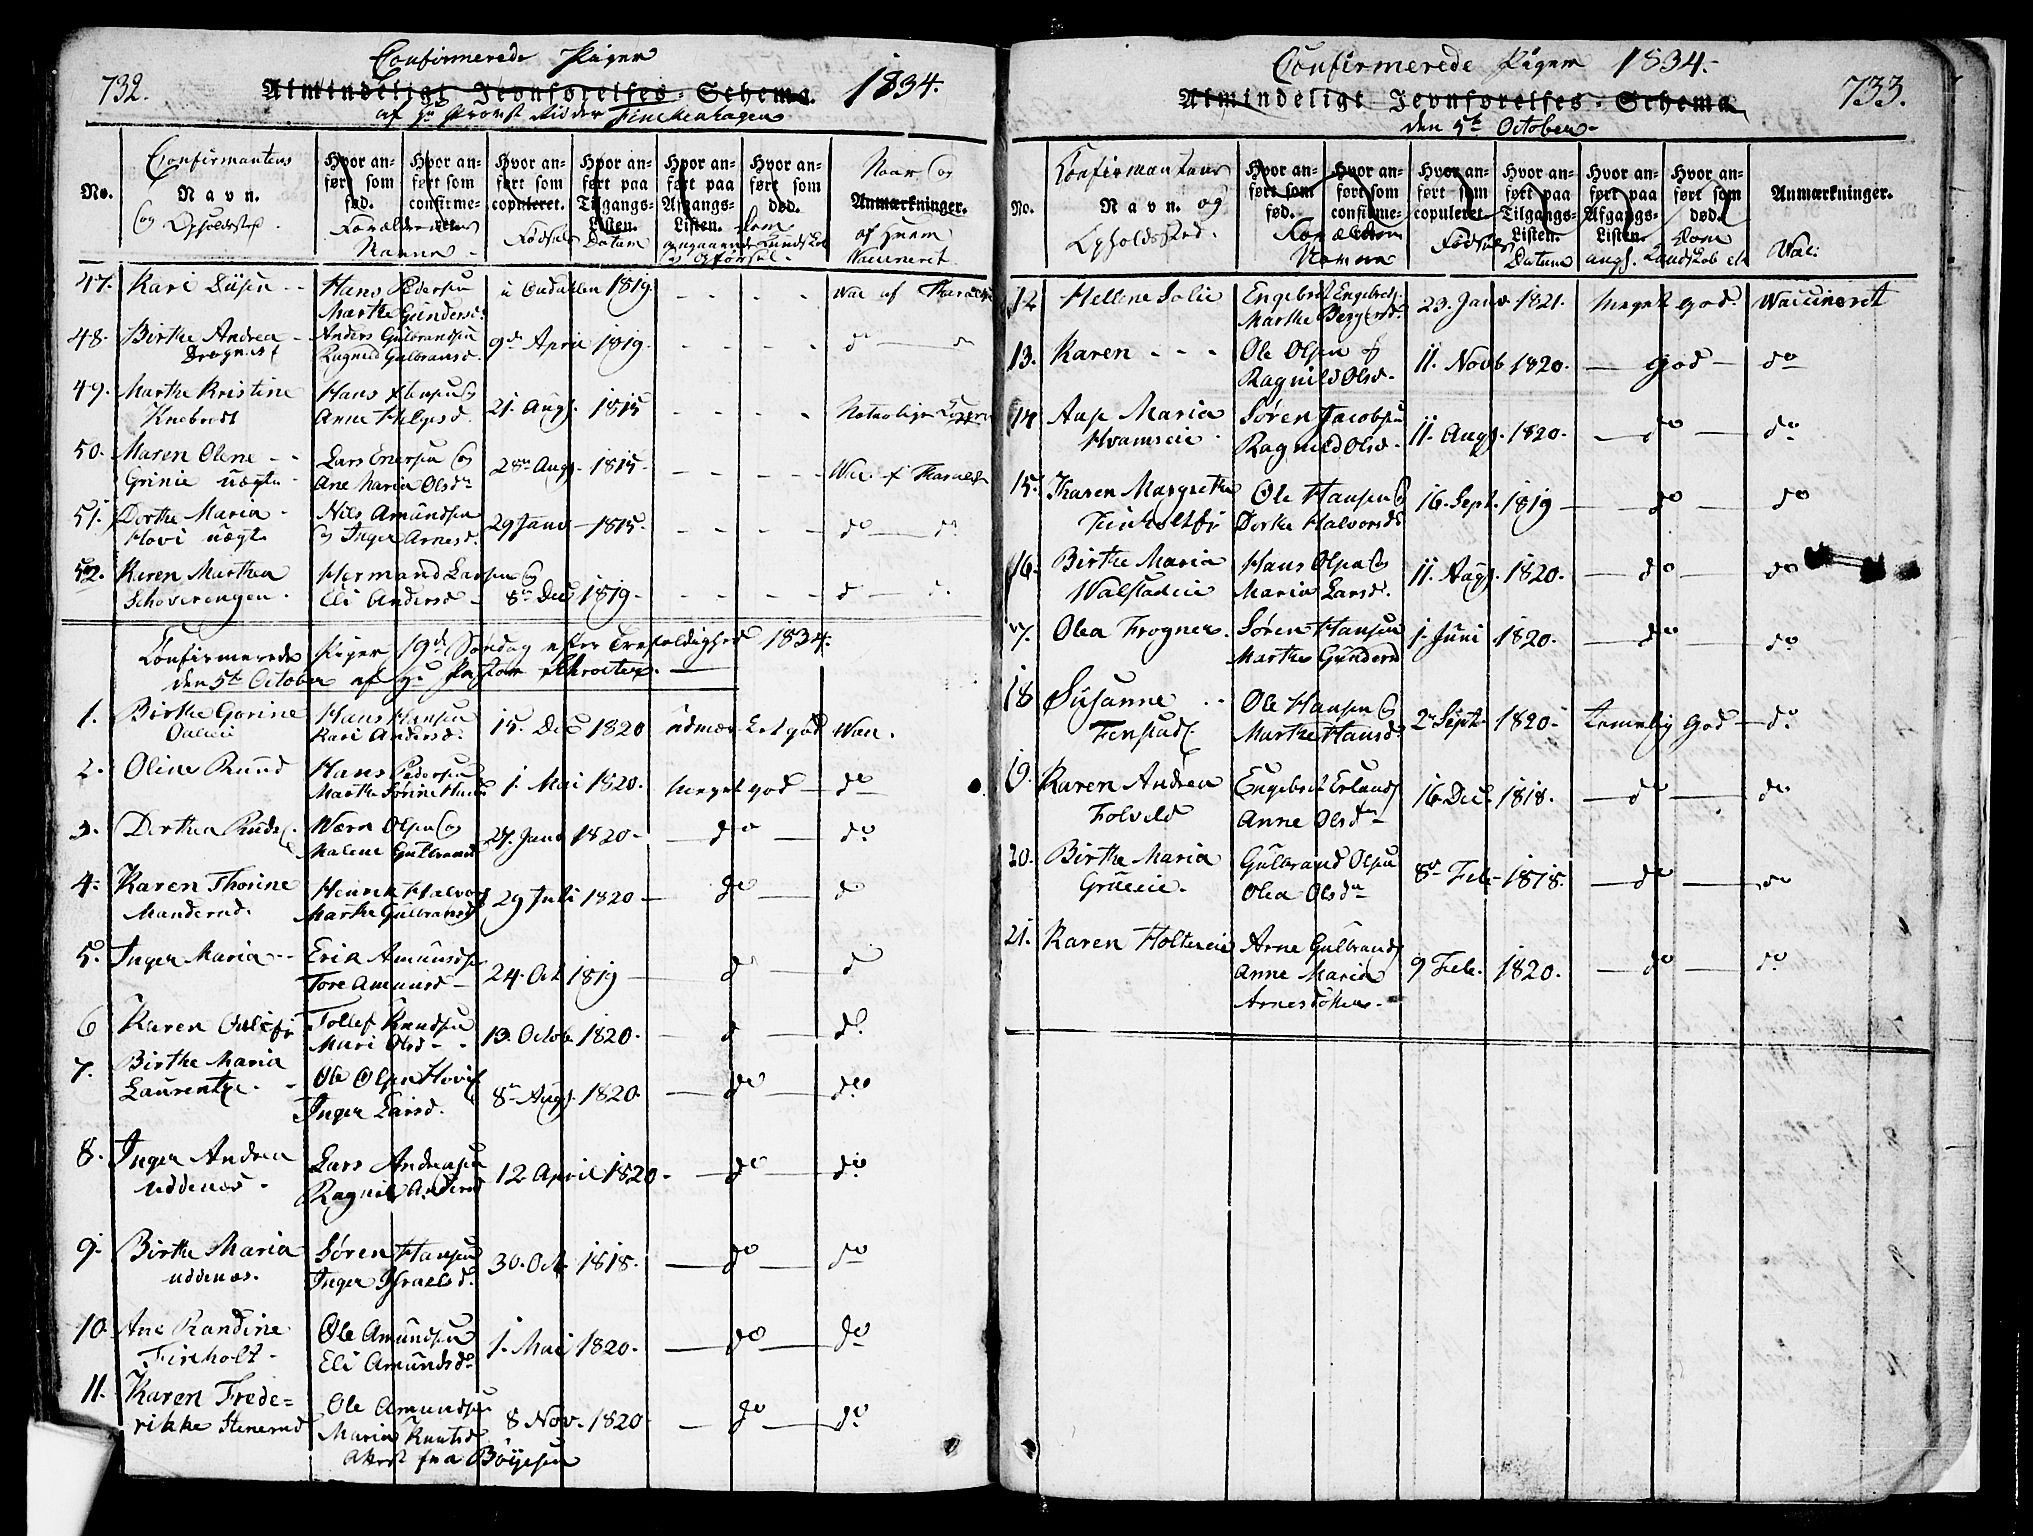 732.
Confirmerede Piger
Almindeligt Jevnførelses-Schema. 1834.
af Hr Provst Ridder Finckenhagen
No.
Confirmantens
Navn.
og Opholdssted.
Hvor anført som fød.
Hvor anført som confirmeret.
Forældrenes
Navne
Hvor anført som copuleret.
Fødsels
Hvor anført paa Tilgangs-Listen.
Datum
Hvor anført paa Afgangs-Listen.
Hvor anført som død.
Dom
angaaende Kundskab
og Opførsel.
Naar og
Anmærkninger.
af hvem
Vaccineret.
47. Kari Diisen - -
Hans Pedersen
Marthe Gundersd.
1819. - - - - Vac af
48. Birthe Andrea
Drognes
Anders Gulbrandsen
Ragnild Gulbransd.
9de April 1819. - - - - do do
49. Marthe Kristine
Hans
Anne Helgesd.
21. Augs. 1815 - - - - Naturlige
50. Maren Olene - -
Grinie
Lars Enersen og
Ane Maria Olsdr
28de Augs. 1815. - - - - Vac.
51. Dorthe Maria
Hovi
Nils Amundsen
og Inger Arnesd.
29 Janv 1815. - - - - do do
52. Karen Marthea
Schoverengen.
Hermand Larsen og
Eli Andersd
8de Dec 1819. - - - - d d.
Confirmerede Piger 19de Søndag efter Trefoldighed 1834.
den 5te October af Hr Pastor Schroeter.
1. Birthe Gorine
Hans Hansen
Kari Andersd.
15. Dec 1820 udmærket god Vac.
2. Oline Rund
Hans Pedersen
Marthe Sørine
1. Mai 1820. Meget god do
3. Dorthea Ruds
Olsen og
Malene Gulbrands
27. Janv 1820. do do
4. Karen Thorine
Manderud.
Henrik Halvors
Marthe Gulbransd
29 Juli 1820 do d
5. Inger Maria - -
Erik Amunds
Tore Amunsd
24. Oct 1819 d d
6 Karen
Tollef Knudsen
Mari Olsd -
13. Octob. 1820. d do
7. Birthe Maria
Laurentze. -
Ole Olsen Hovi
Inger Larsd.
8de Augs. 1820. do do
8. Inger Andrea
Uddenes.
Lars Andreasen
Ragnil Andersd
12 April 1820. do do
9. Birthe Maria
Uddenes.
Søren Hansen
Inger Israelsd.
30. Oct. 1818. do do
10. Ane Randine
Finholt.
Ole Amundsen
Eli Amundsdr
1. Mai 1820. do do
11. Karen Frede=
rikke Stenerud
Ole Amundsen
Maria Knutsd
8 Nov. 1820. do do
Attest fra Böyesen
Confirmerede Piger 1834.
Almindeligt Jevnførelses-Schema 733.
den 5te October
No.
Confirmantens
Navn. og
Opholdssted.
Hvor anført som fød.
Hvor anført som confirmeret
Forældrenes
Navne
Hvor anført som copuleret
Fødsels
Hvor anført paa Tilgangs-Listen.
Datum
Hvor anført paa Afgangs-Listen.
Hvor anført som død.
Dom
angs. Kundskab etc
Anmærkninger.
Vac.
12 Hellene Solie
Engebret Engebrets
Marthe Bergersd.
23. Janv 1821. Meget god. Vaccineret
13. Karen - - -
Ole Olsen
Ragnild Olsd.
11. Novb 1820. god do
14 Aase Maria
Hvamseie.
Søren Jacobsen
Ragnild Olsd.
11. Augs. 1820. do do
15. Karen Margrethe
Ole Hansen og
Dorthe Halvorsd
16. Sept. 1819 do do
16. Birthe Maria
Valstadeie
Hans Olsen og
Maria Larsd.
11. Augs. 1820. do do
17. Olea Frogner.
Søren Hansen
Marthe Gundersd
1. Juni 1820. do do
18 Susanne - -
Fenstad.
Ole Hansen og
Marthe Hansd
2de Sept. 1820 temmelig god do
19. Karen Andrea
Folveld
Engebret Erlands
Anne Olsdr
16 Dec. 1818. do do
20. Birthe Maria
Grueeie.
Gulbrand Olsen
Olea Olsdr
8de Feb 1818. do do
21. Karen Holtereie
Arne Gulbrands
Anne Maria
Arnesdotter.
9 Feb. 1820. do do